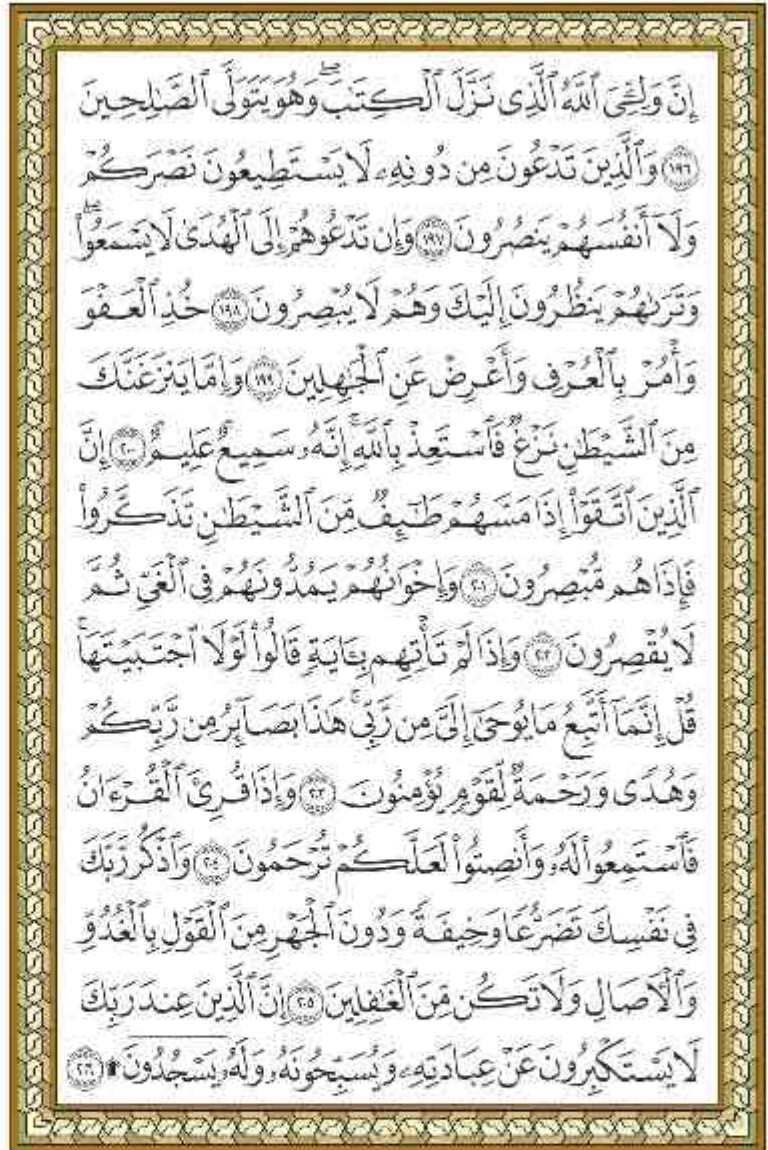 إِنَّ وَلِـِّۧىَ ٱللَّهُ ٱلَّذِى نَزَّلَ ٱلْكِتَـٰبَ ۖ وَهُوَ يَتَوَلَّى ٱلصَّـٰلِحِينَ
﴿١٩٦﴾ وَٱلَّذِينَ تَدْعُونَ مِن دُونِهِۦ لَا يَسْتَطِيعُونَ نَصْرَكُمْ
وَلَآ أَنفُسَهُمْ يَنصُرُونَ ﴿١٩٧﴾ وَإِن تَدْعُوهُمْ إِلَى ٱلْهُدَىٰ لَا يَسْمَعُوا۟ ۖ
وَتَرَىٰهُمْ يَنظُرُونَ إِلَيْكَ وَهُمْ لَا يُبْصِرُونَ ﴿١٩٨﴾ خُذِ ٱلْعَفْوَ
وَأْمُرْ بِٱلْعُرْفِ وَأَعْرِضْ عَنِ ٱلْجَـٰهِلِينَ ﴿١٩٩﴾ وَإِمَّا يَنزَغَنَّكَ
مِنَ ٱلشَّيْطَـٰنِ نَزْغٌ فَٱسْتَعِذْ بِٱللَّهِ ۚ إِنَّهُۥ سَمِيعٌ عَلِيمٌ ﴿٢٠٠﴾ إِنَّ
ٱلَّذِينَ ٱتَّقَوْا۟ إِذَا مَسَّهُمْ طَـٰٓئِفٌ مِّنَ ٱلشَّيْطَـٰنِ تَذَكَّرُوا۟
فَإِذَا هُم مُّبْصِرُونَ ﴿٢٠١﴾ وَإِخْوَٰنُهُمْ يَمُدُّونَهُمْ فِى ٱلْغَىِّ ثُمَّ
لَا يُقْصِرُونَ ﴿٢٠٢﴾ وَإِذَا لَمْ تَأْتِهِم بِـَٔايَةٍ قَالُوا۟ لَوْلَا ٱجْتَبَيْتَهَا ۚ
قُلْ إِنَّمَآ أَتَّبِعُ مَا يُوحَىٰٓ إِلَىَّ مِن رَّبِّى ۚ هَـٰذَا بَصَآئِرُ مِن رَّبِّكُمْ
وَهُدًى وَرَحْمَةٌ لِّقَوْمٍ يُؤْمِنُونَ ﴿٢٠٣﴾ وَإِذَا قُرِئَ ٱلْقُرْءَانُ
فَٱسْتَمِعُوا۟ لَهُۥ وَأَنصِتُوا۟ لَعَلَّكُمْ تُرْحَمُونَ ﴿٢٠٤﴾ وَٱذْكُر رَّبَّكَ
فِى نَفْسِكَ تَضَرُّعًا وَخِيفَةً وَدُونَ ٱلْجَهْرِ مِنَ ٱلْقَوْلِ بِٱلْغُدُوِّ
وَٱلْـَٔاصَالِ وَلَا تَكُن مِّنَ ٱلْغَـٰفِلِينَ ﴿٢٠٥﴾ إِنَّ ٱلَّذِينَ عِندَ رَبِّكَ
لَا يَسْتَكْبِرُونَ عَنْ عِبَادَتِهِۦ وَيُسَبِّحُونَهُۥ وَلَهُۥ يَسْجُدُونَ ۩ ﴿٢٠٦﴾